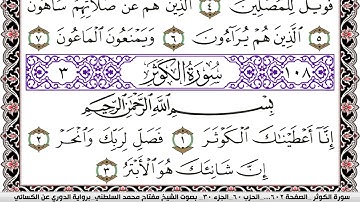 فَوَيْلٌ لِّلْمُصَلِّينَ ٤ الَّذِينَ هُمْ عَن صَلَاتِهِمْ سَاهُونَ
٥ الَّذِينَ هُمْ يُرَاءُونَ ٦ وَيَمْنَعُونَ الْمَاعُونَ ٧
١٠٨ سُورَةُ الْكَوْثَرِ ٣
بِسْمِ اللَّهِ الرَّحْمَٰنِ الرَّحِيمِ
إِنَّا أَعْطَيْنَاكَ الْكَوْثَرَ ١ فَصَلِّ لِرَبِّكَ وَانْحَرْ ٢
إِنَّ شَانِئَكَ هُوَ الْأَبْتَرُ ٣
سورة الكوثر . الصفحة ٦٠٢ ... الحزب ٦٠ . الجزء ٣٠ .. بصوت الشيخ مفتاح محمد السلطني برواية الدوري عن الكسائي